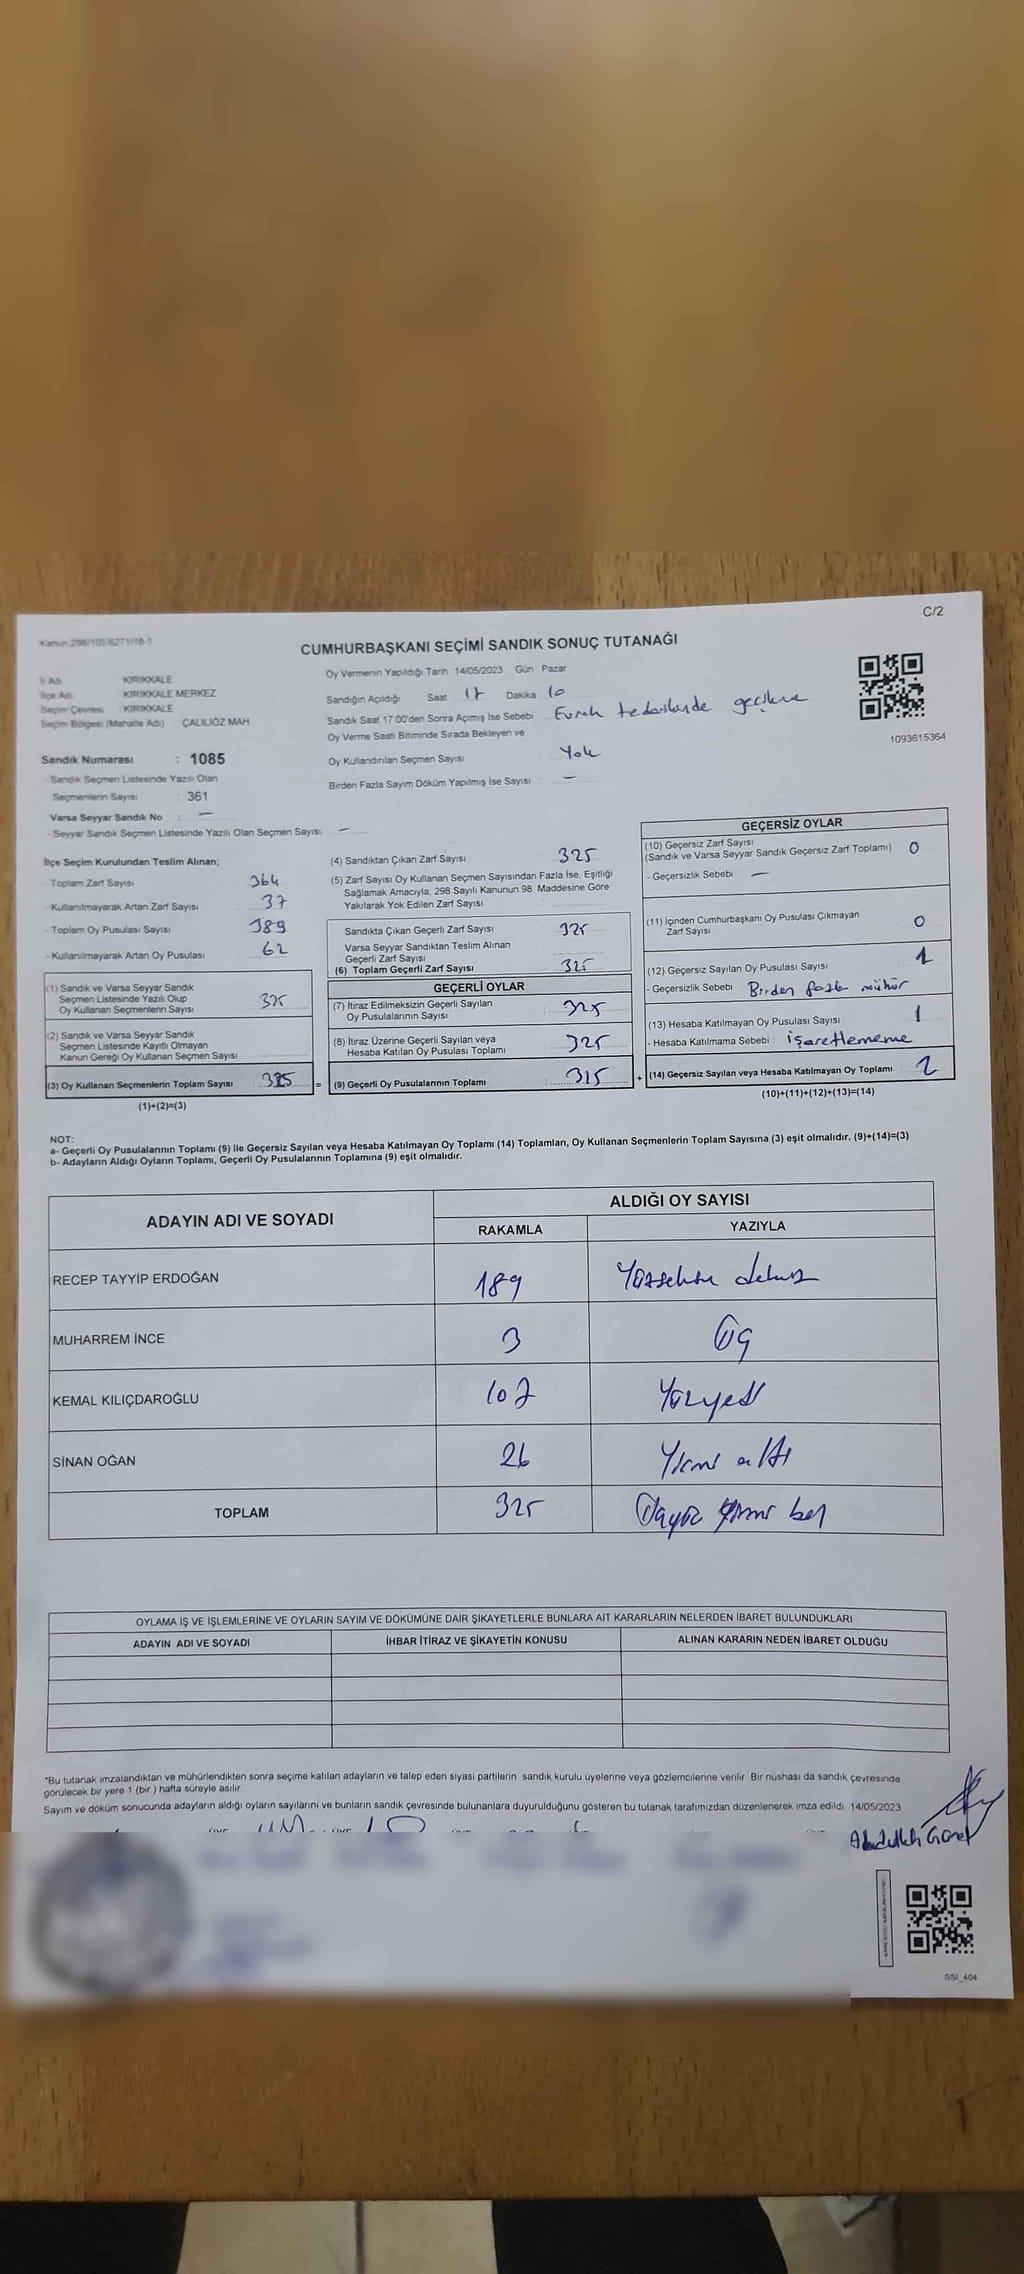 C/2
Kanun:298/105-6271/18-1
CUMHURBAŞKANI SEÇİMİ SANDIK SONUÇ TUTANAĞI
İl Adı : KIRIKKALE
İlçe Adı : KIRIKKALE MERKEZ
Seçim Çevresi : KIRIKKALE
Seçim Bölgesi (Mahalle Adı) ÇALILIÖZ MAH.
Oy Vermenin Yapıldığı Tarih 14/05/2023 Gün : Pazar
Sandığın Açıldığı Saat 17 Dakika 10
Sandık Saat 17:00'den Sonra Açılmış İse Sebebi Evrak gecikme
Oy Verme Saati Bitiminde Sırada Bekleyen ve
Oy Kullandırılan Seçmen Sayısı Yok
Birden Fazla Sayım Döküm Yapılmış İse Sayısı : —
1093615364
Sandık Numarası : 1085
- Sandık Seçmen Listesinde Yazılı Olan
Seçmenlerin Sayısı : 361
Varsa Seyyar Sandık No : —
- Seyyar Sandık Seçmen Listesinde Yazılı Olan Seçmen Sayısı: —
İlçe Seçim Kurulundan Teslim Alınan;
- Toplam Zarf Sayısı 364
- Kullanılmayarak Artan Zarf Sayısı 37
- Toplam Oy Pusulası Sayısı 389
- Kullanılmayarak Artan Oy Pusulası 62
(1) Sandık ve Varsa Seyyar Sandık
Seçmen Listesinde Yazılı Olup
Oy Kullanan Seçmenlerin Sayısı 325
(2) Sandık ve Varsa Seyyar Sandık
Seçmen Listesinde Kayıtlı Olmayan
Kanun Gereği Oy Kullanan Seçmen Sayısı
(3) Oy Kullanan Seçmenlerin Toplam Sayısı 325 =
(1)+(2)=(3)
(4) Sandıktan Çıkan Zarf Sayısı 325
(5) Zarf Sayısı Oy Kullanan Seçmen Sayısından Fazla İse, Eşitliği
Sağlamak Amacıyla; 298 Sayılı Kanunun 98. Maddesine Göre
Yakılarak Yok Edilen Zarf Sayısı :
Sandıkta Çıkan Geçerli Zarf Sayısı : 325
Varsa Seyyar Sandıktan Teslim Alınan
Geçerli Zarf Sayısı
(6) Toplam Geçerli Zarf Sayısı : 325
GEÇERLİ OYLAR
(7) İtiraz Edilmeksizin Geçerli Sayılan
Oy Pusulalarının Sayısı : 325
(8) İtiraz Üzerine Geçerli Sayılan veya
Hesaba Katılan Oy Pusulası Toplamı : 325
(9) Geçerli Oy Pusulalarının Toplamı : 325 +
GEÇERSİZ OYLAR
(10) Geçersiz Zarf Sayısı
(Sandık ve Varsa Seyyar Sandık Geçersiz Zarf Toplamı) 0
- Geçersizlik Sebebi —
(11) İçinden Cumhurbaşkanı Oy Pusulası Çıkmayan
Zarf Sayısı 0
(12) Geçersiz Sayılan Oy Pusulası Sayısı 1
- Geçersizlik Sebebi Birden fazla mühür
(13) Hesaba Katılmayan Oy Pusulası Sayısı 1
- Hesaba Katılmama Sebebi : işaretlememe
(14) Geçersiz Sayılan veya Hesaba Katılmayan Oy Toplamı : 2
(10)+(11)+(12)+(13)=(14)
NOT:
a- Geçerli Oy Pusulalarının Toplamı (9) ile Geçersiz Sayılan veya Hesaba Katılmayan Oy Toplamı (14) Toplamları, Oy Kullanan Seçmenlerin Toplam Sayısına (3) eşit olmalıdır. (9)+(14)=(3)
b- Adayların Aldığı Oyların Toplamı, Geçerli Oy Pusulalarının Toplamına (9) eşit olmalıdır.
ADAYIN ADI VE SOYADI
ALDIĞI OY SAYISI
RAKAMLA YAZIYLA
RECEP TAYYİP ERDOĞAN 189 Yüzseksen dokuz
MUHARREM İNCE 3 Üç
KEMAL KILIÇDAROĞLU 107 Yüzyedi
SİNAN OĞAN 26 Yirmi altı
TOPLAM 325 Üçyüz yirmi beş
OYLAMA İŞ VE İŞLEMLERİNE VE OYLARIN SAYIM VE DÖKÜMÜNE DAİR ŞİKAYETLERLE BUNLARA AİT KARARLARIN NELERDEN İBARET BULUNDUKLARI
ADAYIN ADI VE SOYADI İHBAR İTİRAZ VE ŞİKAYETİN KONUSU ALINAN KARARIN NEDEN İBARET OLDUĞU
*Bu tutanak imzalandıktan ve mühürlendikten sonra seçime katılan adayların ve talep eden siyasi partilerin sandık kurulu üyelerine veya gözlemcilerine verilir. Bir nüshası da sandık çevresinde
görülecek bir yere 1 (bir ) hafta süreyle asılır.
Sayım ve döküm sonucunda adayların aldığı oyların sayılarını ve bunların sandık çevresinde bulunanlara duyurulduğunu gösteren bu tutanak tarafımızdan düzenlenerek imza edildi. 14/05/2023
SSI_404